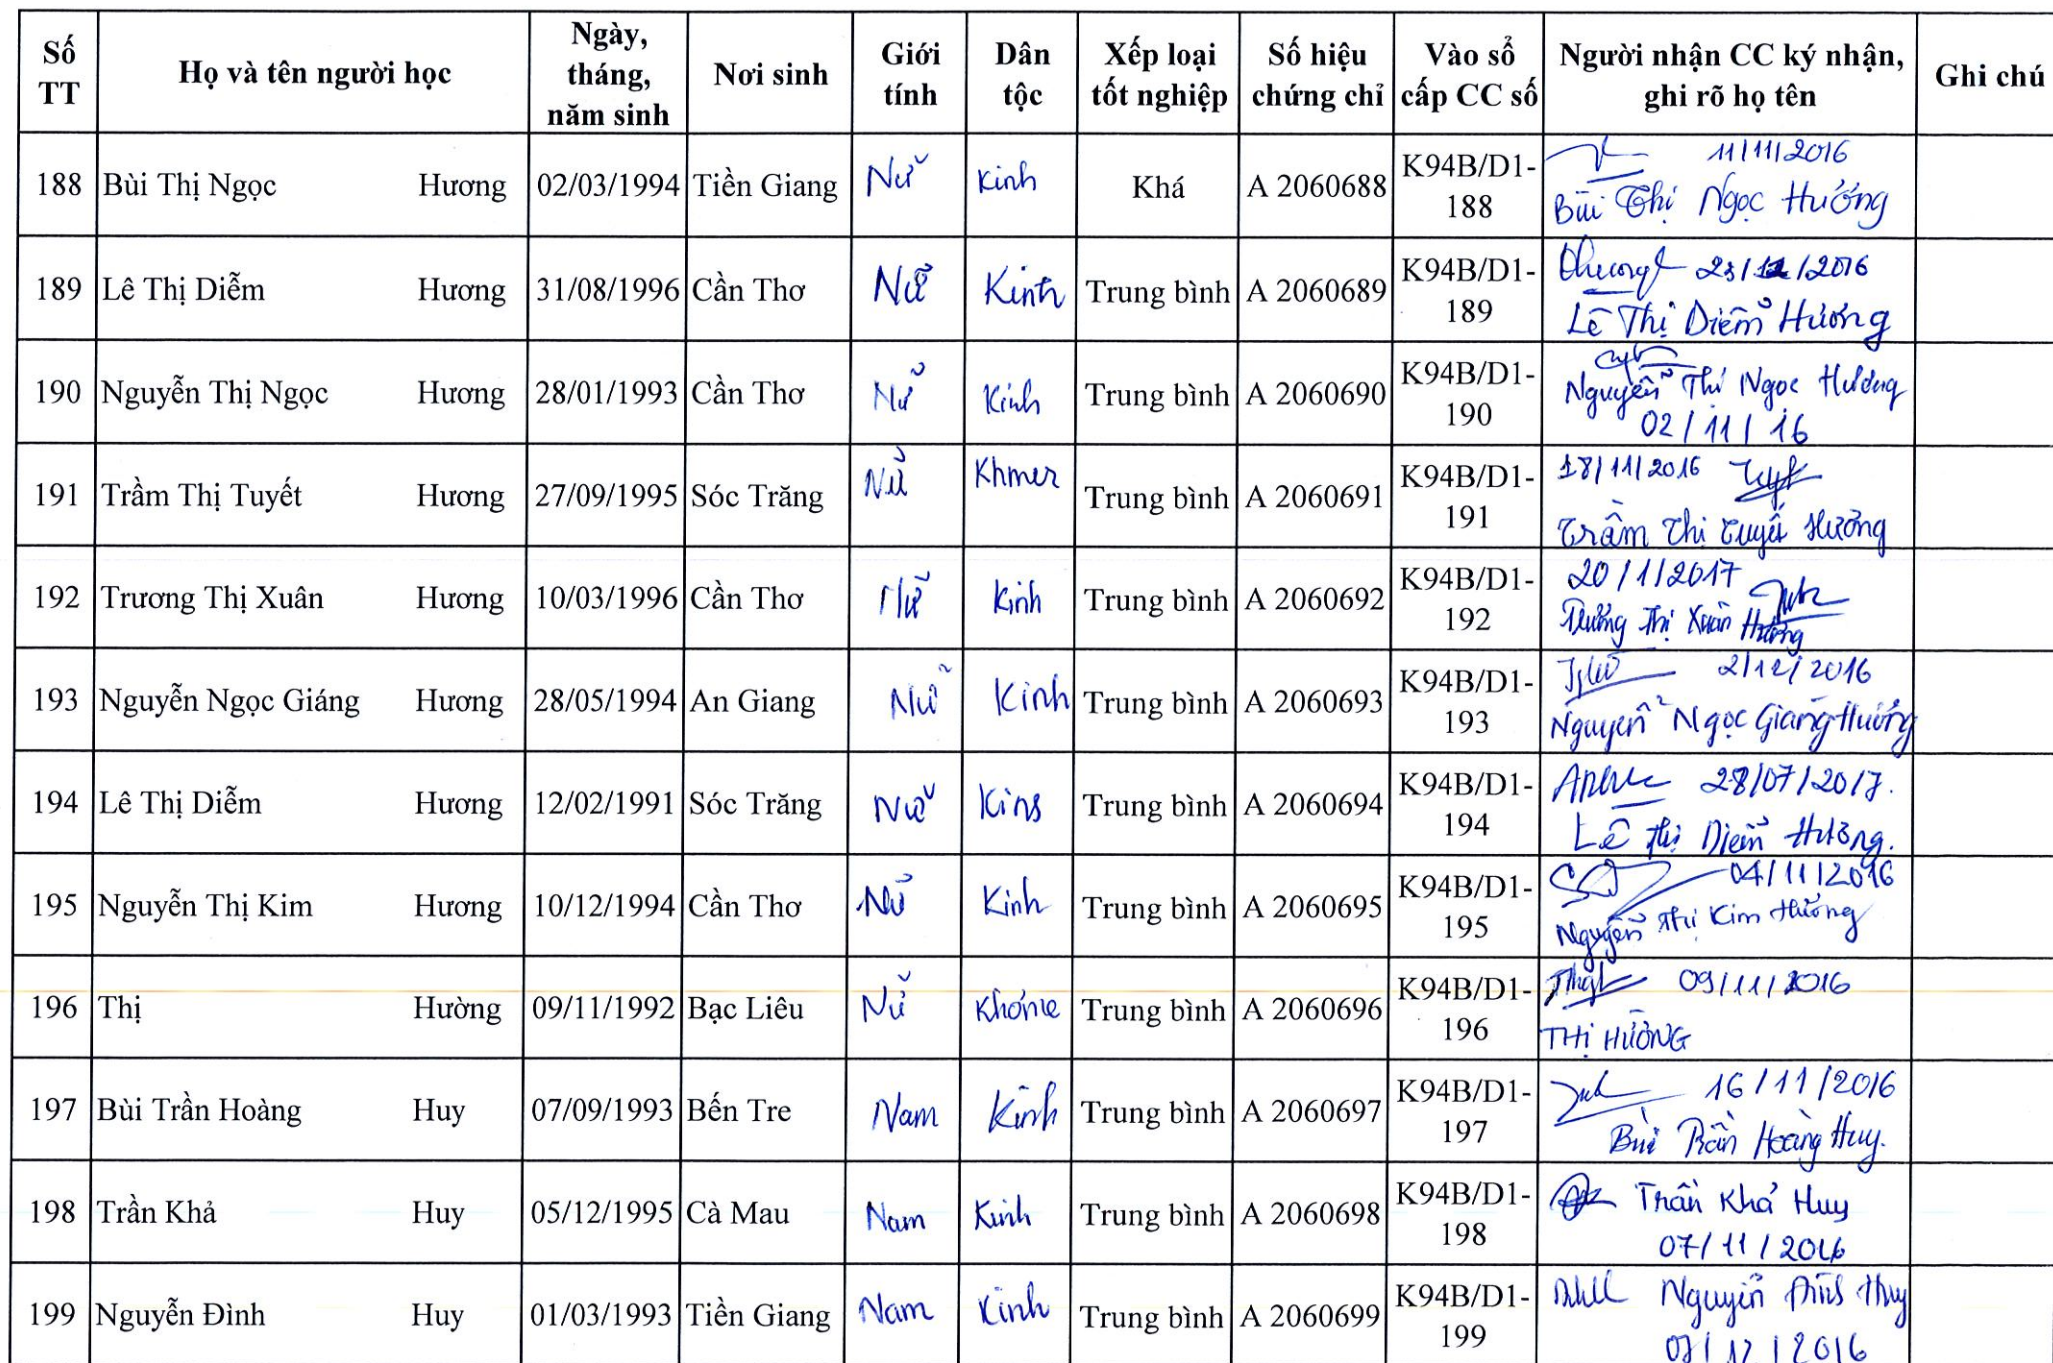 Số TT | Họ và tên người học | Ngày, tháng, năm sinh | Nơi sinh | Giới tính | Dân tộc | Xếp loại tốt nghiệp | Số hiệu chứng chỉ | Vào sổ cấp CC số | Người nhận CC ký nhận, ghi rõ họ tên | Ghi chú
188 | Bùi Thị Ngọc Hương | 02/03/1994 | Tiền Giang | Nữ | Kinh | Khá | A 2060688 | K94B/D1-188 | 11/11/2016 Bùi Thị Ngọc Hương
189 | Lê Thị Diễm Hương | 31/08/1996 | Cần Thơ | Nữ | Kinh | Trung bình | A 2060689 | K94B/D1-189 | Lê Thị Diễm Hương
190 | Nguyễn Thị Ngọc Hương | 28/01/1993 | Cần Thơ | Nữ | Kinh | Trung bình | A 2060690 | K94B/D1-190 | Nguyễn Thị Ngọc Hương 02/11/16
191 | Trầm Thị Tuyết Hương | 27/09/1995 | Sóc Trăng | Nữ | Khmer | Trung bình | A 2060691 | K94B/D1-191 | 18/11/2016 Trầm Thị Tuyết Hương
192 | Trương Thị Xuân Hương | 10/03/1996 | Cần Thơ | Nữ | Kinh | Trung bình | A 2060692 | K94B/D1-192 | 20/1/2017 Trương Thị Xuân Hương
193 | Nguyễn Ngọc Giáng Hương | 28/05/1994 | An Giang | Nữ | Kinh | Trung bình | A 2060693 | K94B/D1-193 | 2/12/2016 Nguyễn Ngọc Giáng Hương
194 | Lê Thị Diễm Hương | 12/02/1991 | Sóc Trăng | Nữ | Kinh | Trung bình | A 2060694 | K94B/D1-194 | 28/07/2017. Lê Thị Diễm Hương.
195 | Nguyễn Thị Kim Hương | 10/12/1994 | Cần Thơ | Nữ | Kinh | Trung bình | A 2060695 | K94B/D1-195 | 04/11/2016 Nguyễn Thị Kim Hương
196 | Thị Hường | 09/11/1992 | Bạc Liêu | Nữ | Khơme | Trung bình | A 2060696 | K94B/D1-196 | 09/11/2016 THỊ HƯỜNG
197 | Bùi Trần Hoàng Huy | 07/09/1993 | Bến Tre | Nam | Kinh | Trung bình | A 2060697 | K94B/D1-197 | 16/11/2016 Bùi Trần Hoàng Huy.
198 | Trần Khả Huy | 05/12/1995 | Cà Mau | Nam | Kinh | Trung bình | A 2060698 | K94B/D1-198 | Trần Khả Huy 07/11/2016
199 | Nguyễn Đình Huy | 01/03/1993 | Tiền Giang | Nam | Kinh | Trung bình | A 2060699 | K94B/D1-199 | Nguyễn Đình Huy